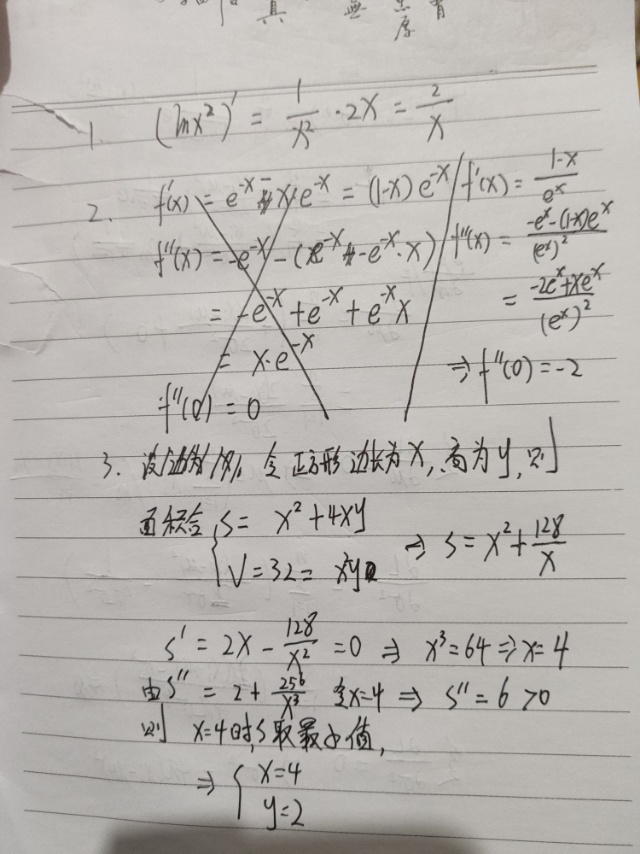 1. (lnx²)' = 1/x² · 2x = 2/x
2. f'(x) = e^-x - xe^-x = (1-x)e^-x
f''(x) = -e^-x - (e^-x - e^-x·x)
= -e^-x + e^-x + e^-x x
= x·e^-x
f''(0) = 0
f'(x) = (1-x)/e^x
f''(x) = (-e^x-(1-x)e^x)/(e^x)²
= (-2e^x+xe^x)/(e^x)²
⇒ f''(0) = -2
3. 令正方形边长为x,高为y,则
面积 S = x²+4xy
V = 32 = x²y
⇒ S = x²+128/x
S' = 2x - 128/x² = 0 ⇒ x³=64 ⇒ x=4
由S'' = 2 + 256/x³ 令x=4 ⇒ S''=6>0
则 x=4时,S取最小值,
⇒ { x=4
y=2